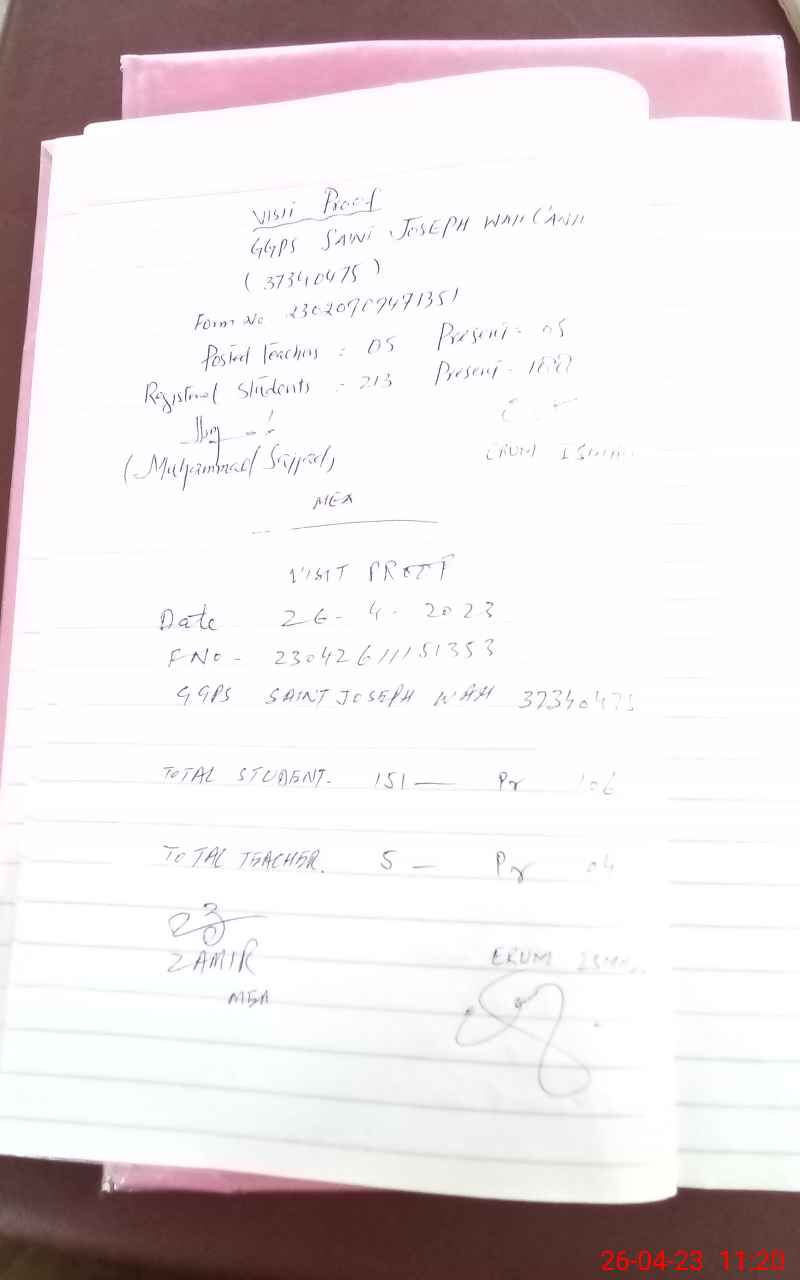 Visit Proof
GGPS SAINT JOSEPH WAH CANTT
(37340475)
Form No 23020909471351
Posted Teachers : 05 Present - 05
Registered Students :- 213 Present - 188
(Muhammad Sajjad)
ERUM
MEA
VISIT PROOF
Date 26-4-2023
F NO - 23042611151353
GGPS SAINT JOSEPH WAH 37340475
TOTAL STUDENT. 151 — Pr 106
TOTAL TEACHER. 5 — Pr 04
ZAMIR
ERUM
MEA
26-04-23 11:20